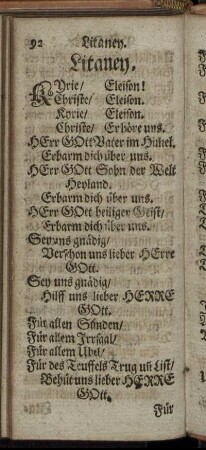 92 Litaney.
Litaney.
KYrie/ Eleison!
Christe/ Eleison.
Kyrie/ Eleison.
Christe/ Erhöre uns.
HErr GOtt Vater im Himel.
Erbarm dich über uns.
HErr GOtt Sohn der Welt
Heyland.
Erbarm dich über uns.
HErr GOtt heiliger Geist/
Erbarm dich über uns.
Sey uns gnädig/
Verschon uns lieber HErre
GOtt.
Sey uns gnädig/
Hilff uns lieber HERRE
GOtt.
Für allen Sünden/
Für allem Irrsaal/
Für allem Übel/
Für des Teuffels Trug uñ List/
Behüt uns lieber HERRE
GOtt.
Für